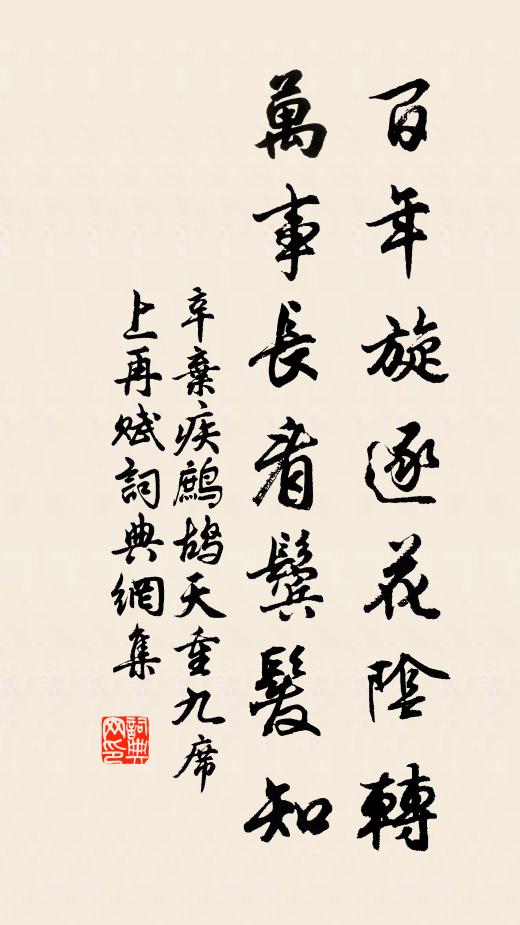 百年旋逐花陰轉
萬事長看鬢髮知
辛棄疾鷓鴣天重九席
上再賦詞典網集
詞典網印